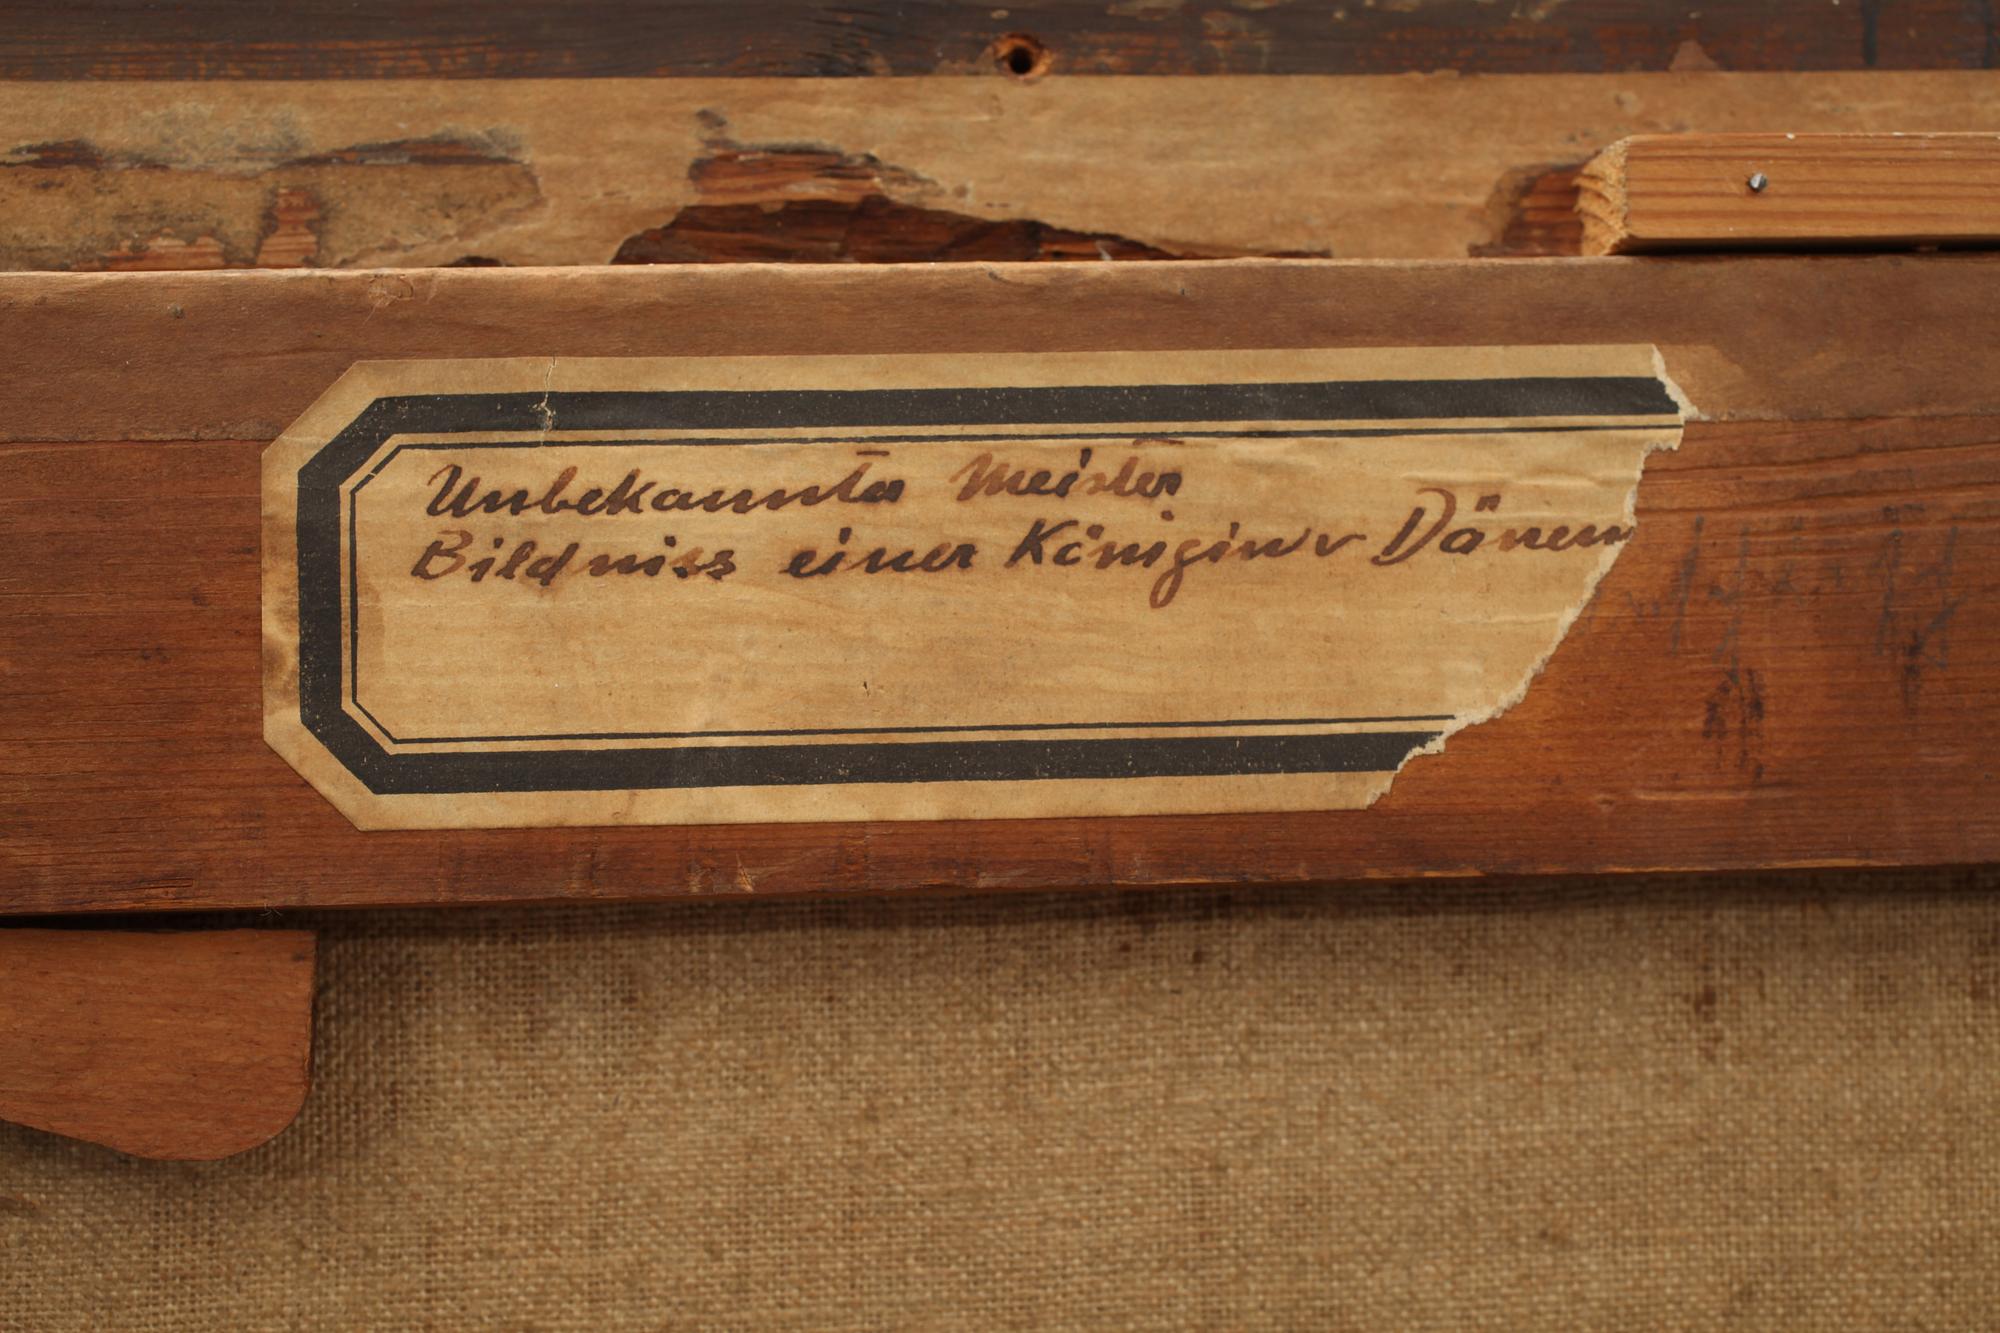 Unbekannter Meister
Bildniss einer Königin v Dänem